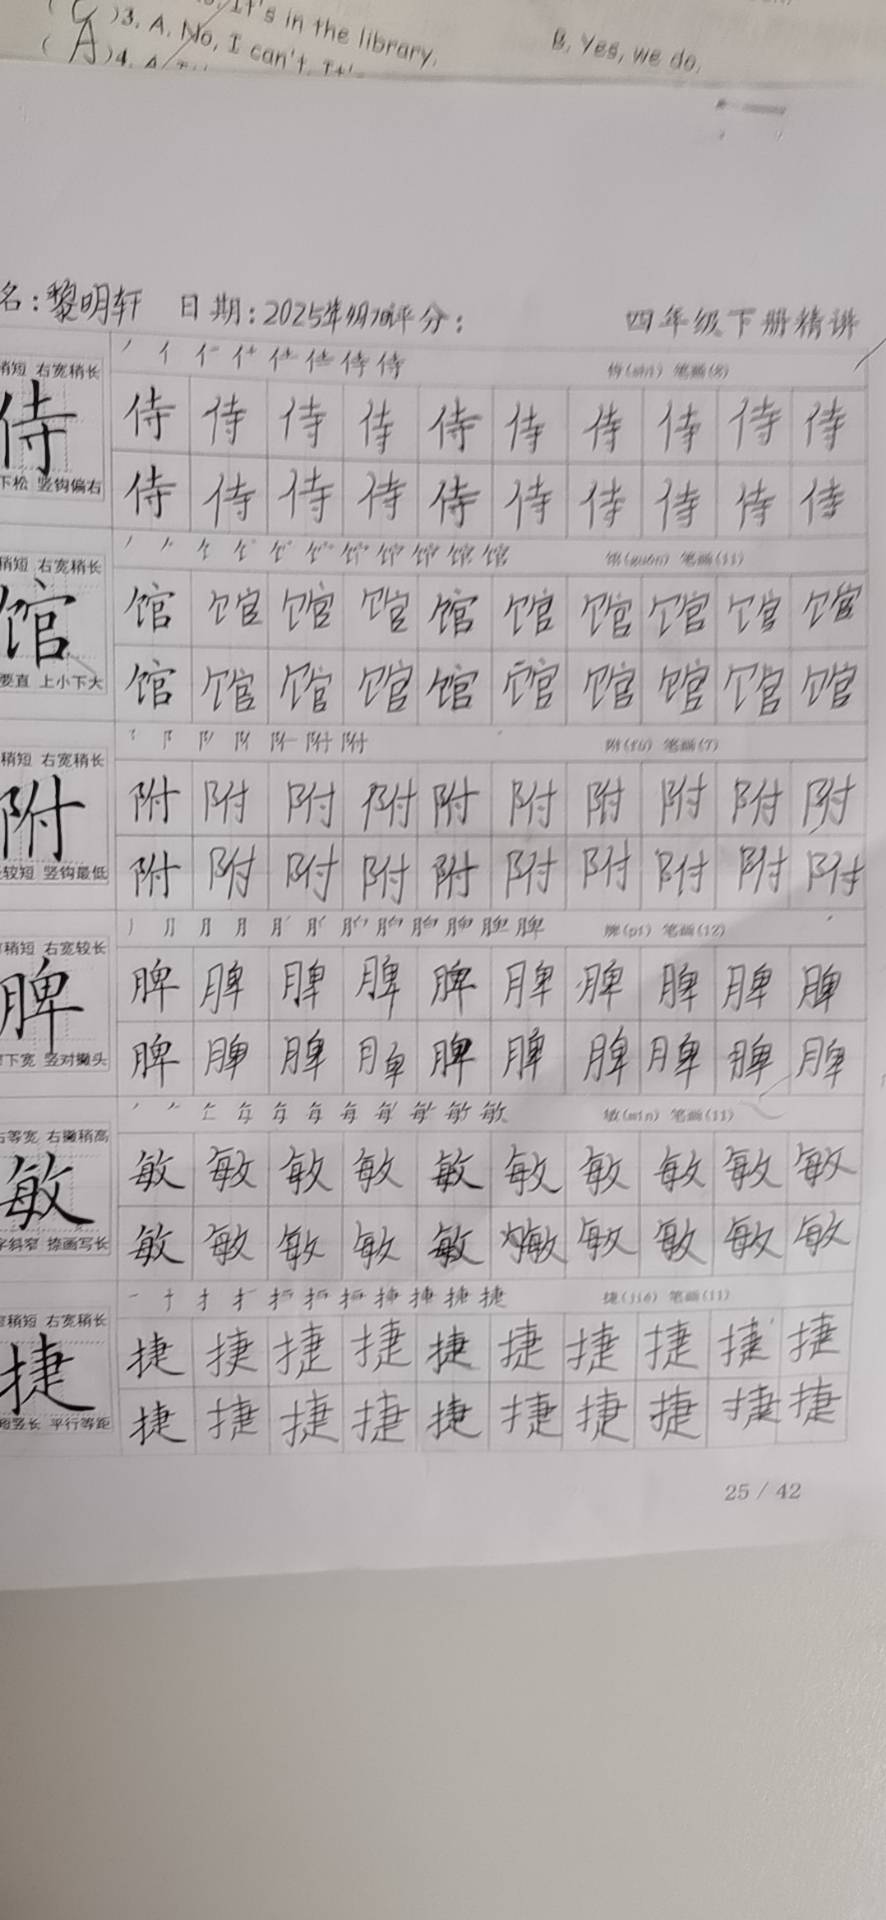 It's in the library.
)3. A. No, I can't. It'
B. Yes, we do.
C
A
)4. A
名：黎明轩 日期：2025年 评分：
四年级下册精讲
稍短 右宽稍长
侍
下松 竖钩偏右
侍(shì) 笔画(8)
侍 侍 侍 侍 侍 侍 侍 侍 侍 侍
侍 侍 侍 侍 侍 侍 侍 侍 侍 侍
稍短 右宽稍长
馆
要直 上小下大
馆(guǎn) 笔画(11)
馆 馆 馆 馆 馆 馆 馆 馆 馆 馆
馆 馆 馆 馆 馆 馆 馆 馆 馆 馆
稍短 右宽稍长
附
较短 竖钩最低
附(fù) 笔画(7)
附 附 附 附 附 附 附 附 附 附
附 附 附 附 附 附 附 附 附 附
稍短 右宽较长
脾
下宽 竖对撇头
脾(pí) 笔画(12)
脾 脾 脾 脾 脾 脾 脾 脾 脾 脾
脾 脾 脾 脾 脾 脾 脾 脾 脾 脾
右等宽 右撇稍高
敏
字斜窄 捺画写长
敏(mǐn) 笔画(11)
敏 敏 敏 敏 敏 敏 敏 敏 敏 敏
敏 敏 敏 敏 敏 敏 敏 敏 敏 敏
稍短 右宽稍长
捷
短竖长 平行等距
捷(jié) 笔画(11)
捷 捷 捷 捷 捷 捷 捷 捷 捷 捷
捷 捷 捷 捷 捷 捷 捷 捷 捷 捷
25 / 42